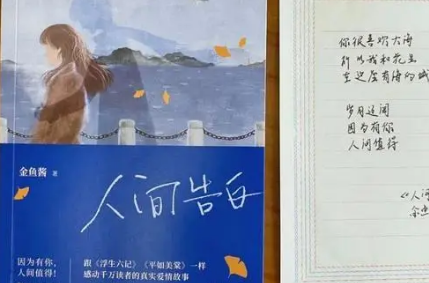 金鱼酱 著
人间告白
因为有你，
人间值得！
跟《浮生六记》《平如美棠》一样
感动千万读者的真实爱情故事
你很喜欢大海
所以我和花生
在这座有海的城
岁月辽阔
因为有你
人间值得
《人间
金鱼